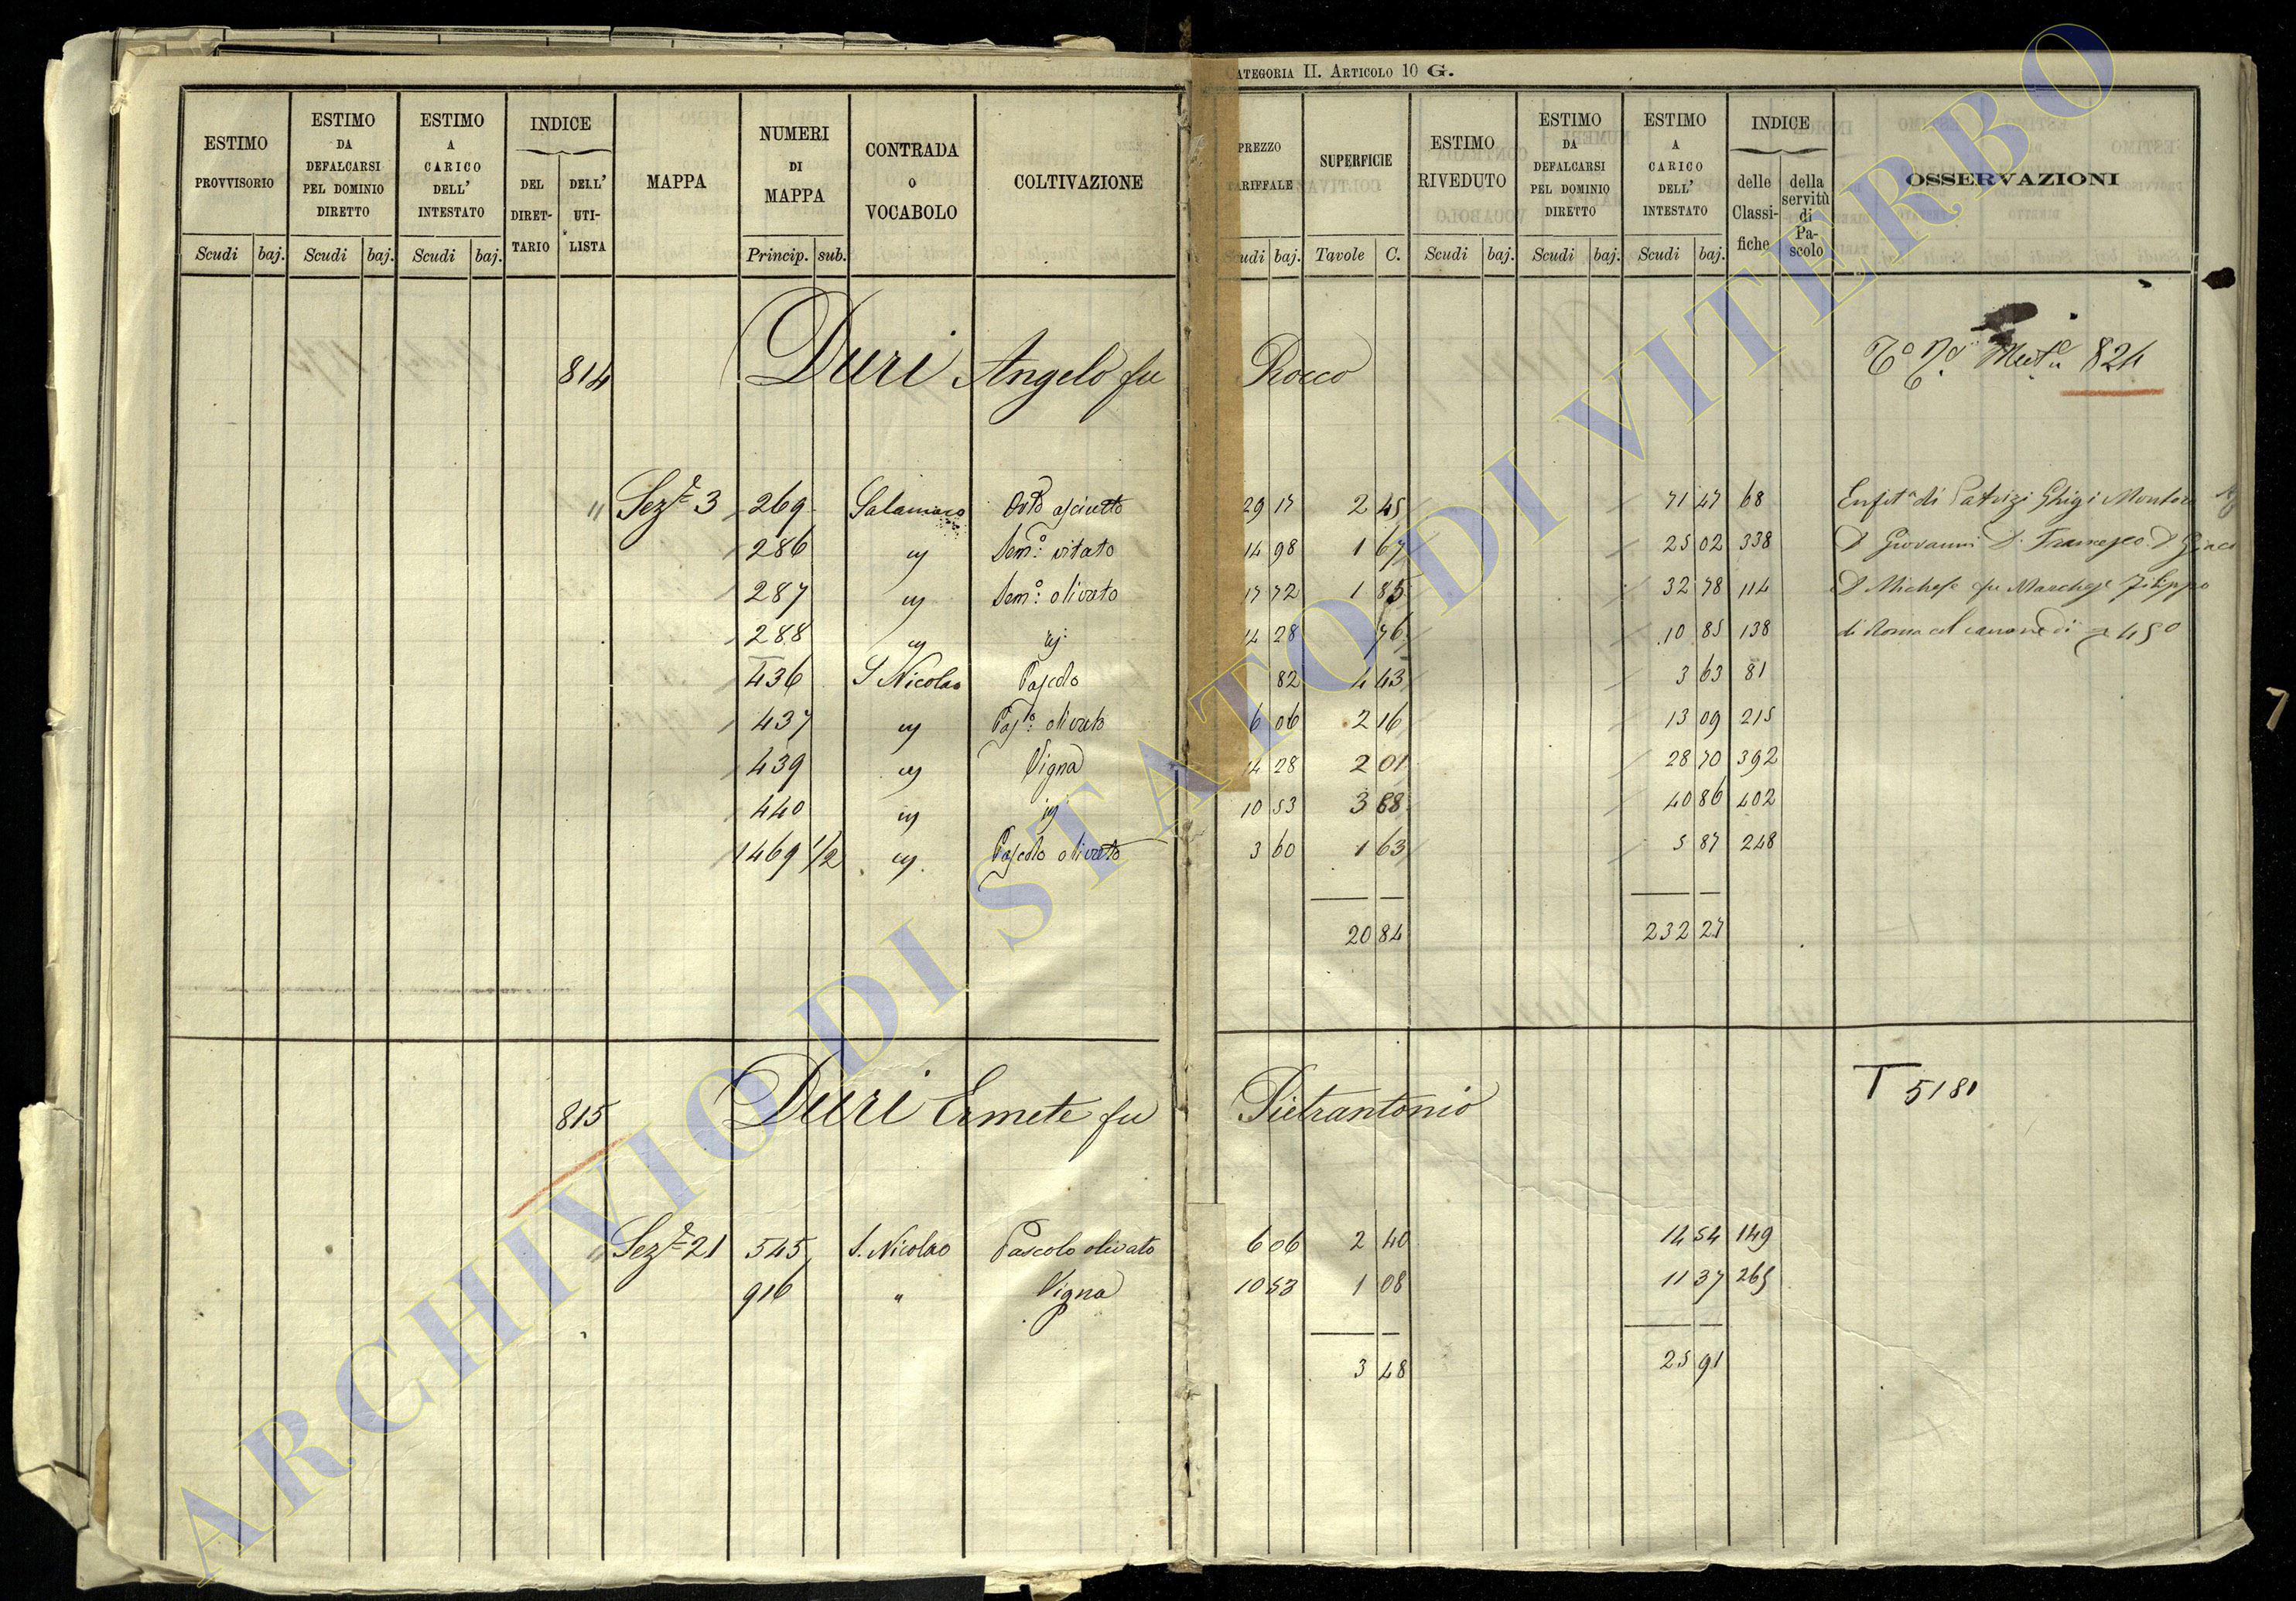 CATEGORIA II. ARTICOLO 10 G.
ESTIMO PROVVISORIO Scudi baj.
ESTIMO DA DEFALCARSI PEL DOMINIO DIRETTO Scudi baj.
ESTIMO A CARICO DELL' INTESTATO Scudi baj.
INDICE DEL DIRET-TARIO DELL' UTI-LISTA
MAPPA
NUMERI DI MAPPA Princip. sub.
CONTRADA O VOCABOLO
COLTIVAZIONE
PREZZO TARIFFALE Scudi baj.
SUPERFICIE Tavole C.
ESTIMO RIVEDUTO Scudi baj.
ESTIMO DA DEFALCARSI PEL DOMINIO DIRETTO Scudi baj.
ESTIMO A CARICO DELL' INTESTATO Scudi baj.
INDICE delle Classi-fiche della servitù di Pa-scolo
OSSERVAZIONI
814 Duri Angelo fu Rocco 824
" Sez.e 3 269 Salamaro Orto asciutto 29 17 2 45 71 47 68 Enfit.a di Patrizi Ghigi Montoro
286 Sem.o vitato 14 98 1 67 25 02 338 D Giovanni D. Francesco D
287 Sem.o olivato 17 72 1 85 32 78 114 D Michele fu Marchese Filippo
288 14 28 76 10 85 138 di Roma col canone di 450
436 S Nicolao Pascolo 82 4 43 3 63 81
437 Pas.lo olivato 6 06 2 16 13 09 215
439 Vigna 14 28 2 01 28 70 392
440 10 53 3 88 40 86 402
1469 1/2 Pascolo olivato 3 60 1 63 5 87 248
20 84 232 27
815 Duri Ermete fu Pietrantonio T 5181
" Sez.e 21 545 S. Nicolao Pascolo olivato 6 06 2 40 14 54 149
916 " Vigna 10 53 1 08 11 37 265
3 48 25 91
7
ARCHIVIO DI STATO DI VITERBO